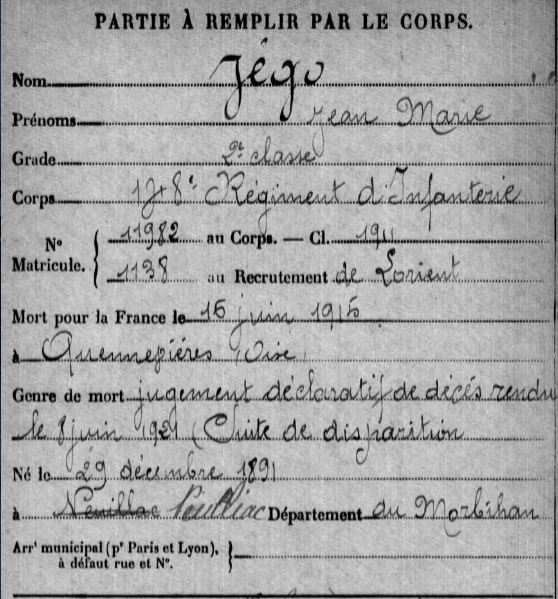 PARTIE À REMPLIR PAR LE CORPS.
Nom Jégo
Prénoms Jean Marie
Grade 2e classe
Corps 178e Régiment d'Infanterie
N° Matricule. { 11982 au Corps. — Cl. 1911
1138 au Recrutement de Lorient
Mort pour la France le 16 juin 1915
à Quennevières Oise
Genre de mort jugement déclaratif de décès rendu
le 8 juin 1921 (Suite de disparition
Né le 29 décembre 1891
à Neuillac Neulliac Département du Morbihan
Arrt municipal (pr Paris et Lyon), }
à défaut rue et N°.